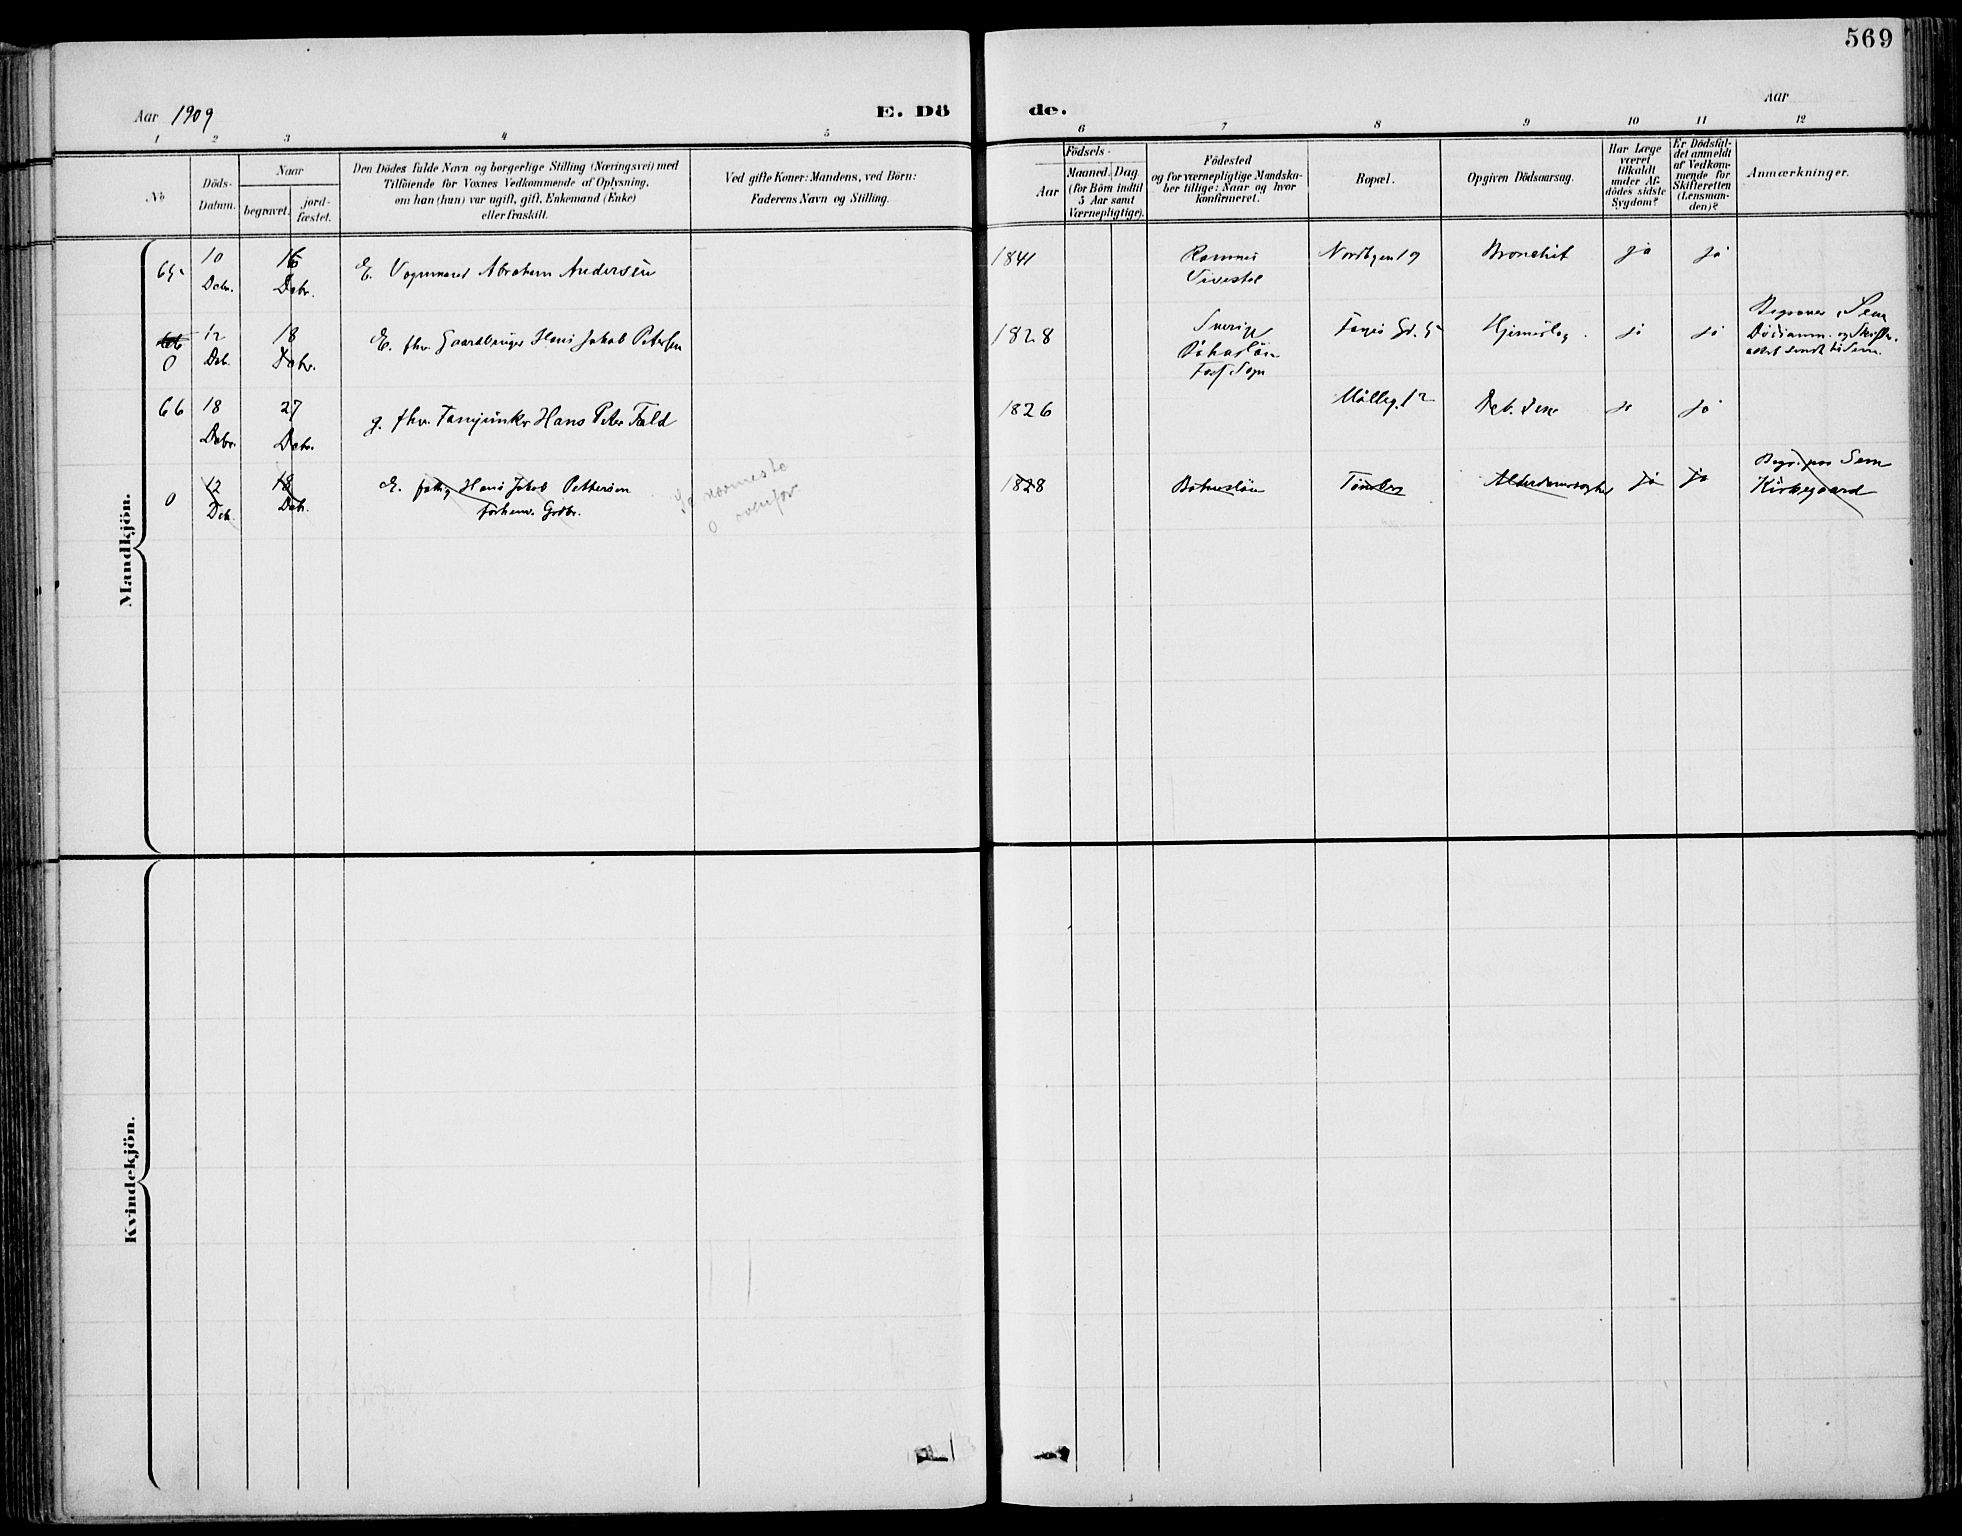 569
Aar 1909
E. Dö
de.
Aar
1 2 3 4 5
6 7 8 9 10 11 12
No
Döds-
Datum.
Naar
begravet.
jord-
fæstet.
Den Dödes fulde Navn og borgerlige Stilling (Næringsvei) med
Tilföiende for Voxnes Vedkommende af Oplysning,
om han (hun) var ugift, gift, Enkemand (Enke)
eller fraskilt.
Ved gifte Koner: Mandens, ved Börn:
Faderens Navn og Stilling.
Födsels-
Aar
Maaned.
Dag
(for Börn indtil
5 Aar samt
Værnepligtige).
Födested
og for værnepligtige Mandska-
ber tillige: Naar og hvor
konfirmeret.
Bopæl.
Opgiven Dödsaarsag.
Har Læge
været
tilkaldt
under Af-
dödes sidste
Sygdom?
Er Dödsfal-
det anmeldt
af Vedkom-
mende for
Skifteretten
(Lensman-
den)?
Anmærkninger.
Mandkjön.
65
10
Debr.
16
Debr.
E. Vognmand Abraham Andersen
1841
Ramnes
Nordbyen 19
Bronchit
ja
ja
66
0
12
Deb.
18
Debr.
E. fhv. Gaardbruger Hans Jakob Petersen
1828
Sverige
Bohuslän
Sogn
ja
ja
Begraves i Sem
66
18
Debr.
27
Debr.
g. fhv. Hans Peter Fald
1826
Mölleg. 12
ja
ja
0
12
Deb.
18
Deb.
E. Hans Jakob Pettersen
forhenv. Grdbr.
Se nærmeste
0 ovenfor
1828
Bohuslän
Tönsberg
Alderdomssvaghed
ja
ja
Begr. paa Sem
Kirkegaard
Kvindekjön.